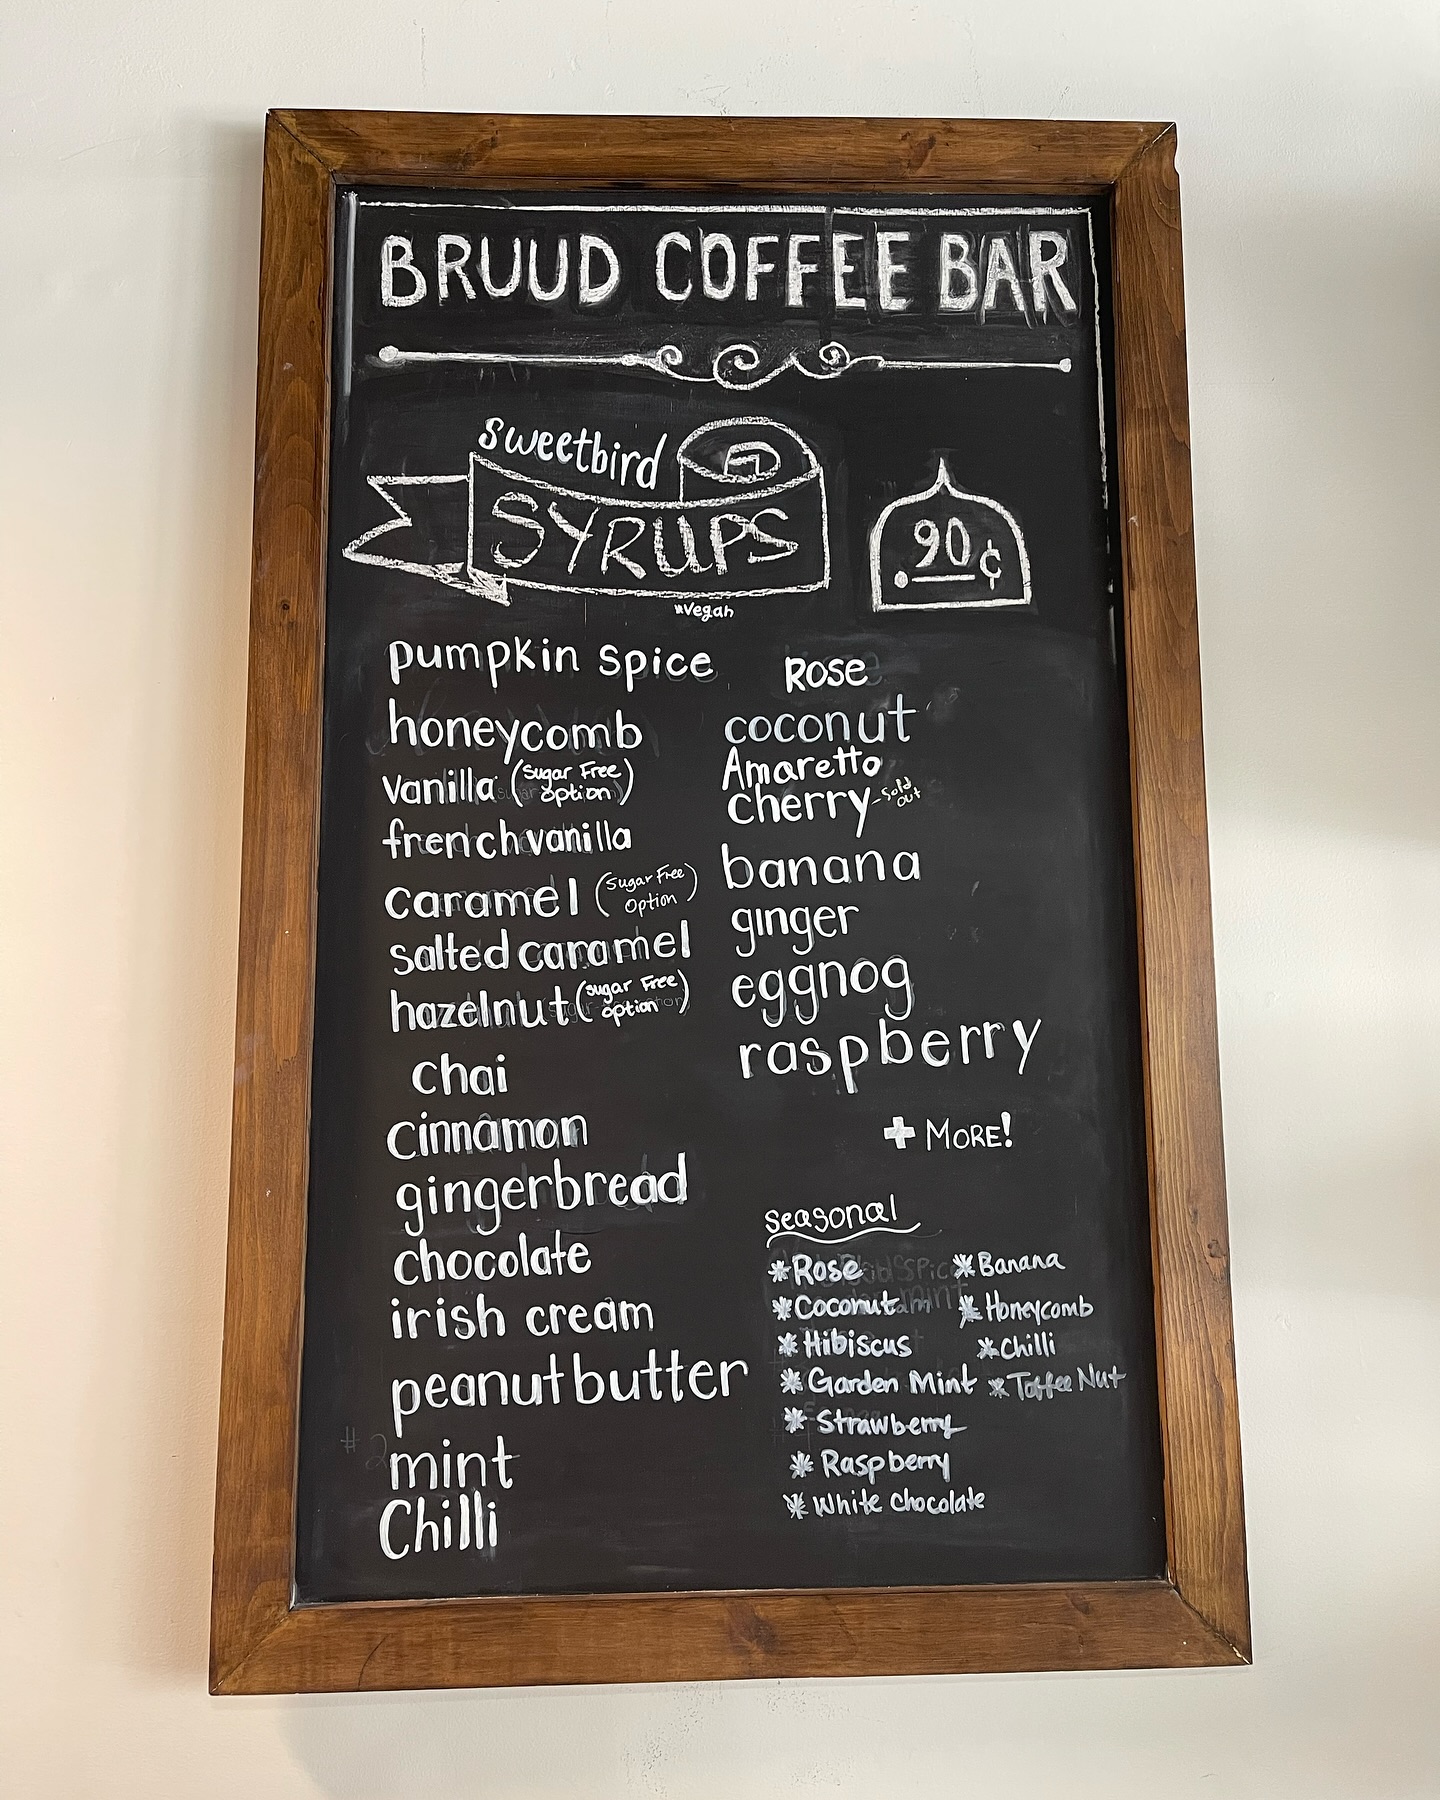 BRUUD COFFEE BAR
sweetbird
SYRUPS
.90¢
*Vegan
pumpkin spice
honeycomb
Vanilla (Sugar Free option)
french vanilla
caramel (Sugar Free Option)
salted caramel
hazelnut (sugar Free option)
chai
cinnamon
gingerbread
chocolate
irish cream
peanut butter
mint
Chilli
Rose
coconut
Amaretto
cherry - Sold out
banana
ginger
eggnog
raspberry
+ MORE!
seasonal
* Rose
* Coconut
* Hibiscus
* Garden Mint
* Strawberry
* Raspberry
* White Chocolate
* Banana
* Honeycomb
* Chilli
* Toffee Nut